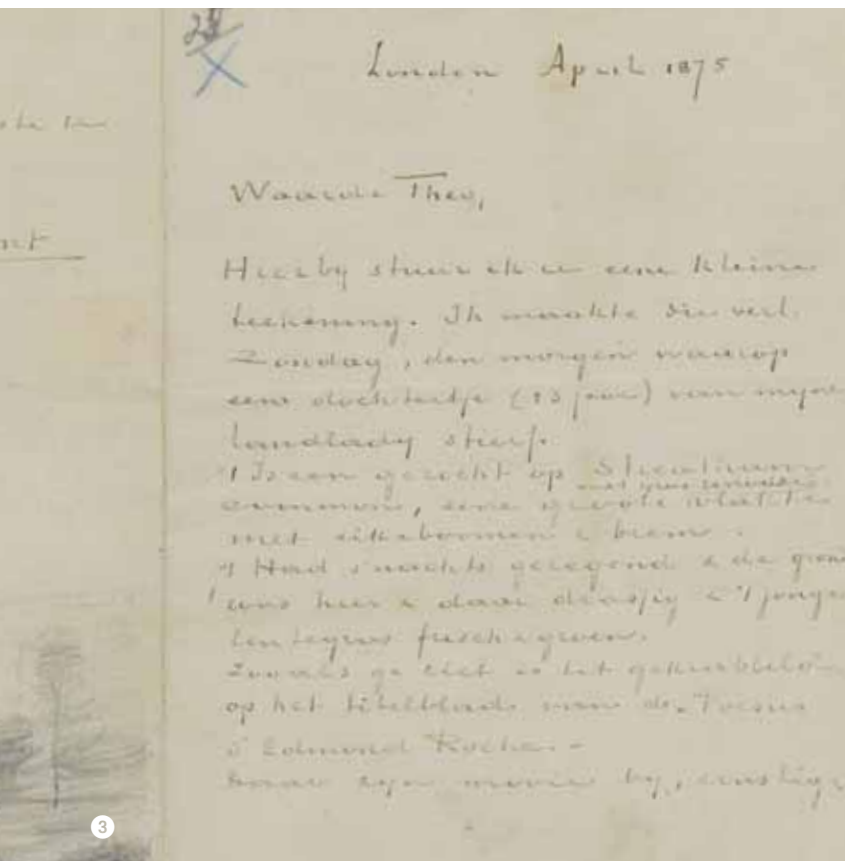 28
X
London April 1875
Waarde Theo,
Hierby stuur ik u eene kleine
teekening. Ik maakte die verl.
Zondag, den morgen waarop
een dochtertje (13 jaar) van myne
landlady stierf.
't Is een gezicht op Streatham
common, eene groote vlakte
met gras begroeid
met eikeboomen & brem.
't Had s'nachts geregend & de grond
was hier & daar drassig & 't jonge
lentegras frisch & groen.
Zooals ge ziet is het gekrabbeld
op het titelblad van de „Poesies
d'Edmond Roche.–
Daar zyn mooie by, ernstige
3